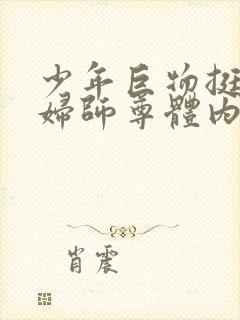 少年巨物挺
婦師尊體內
肖震